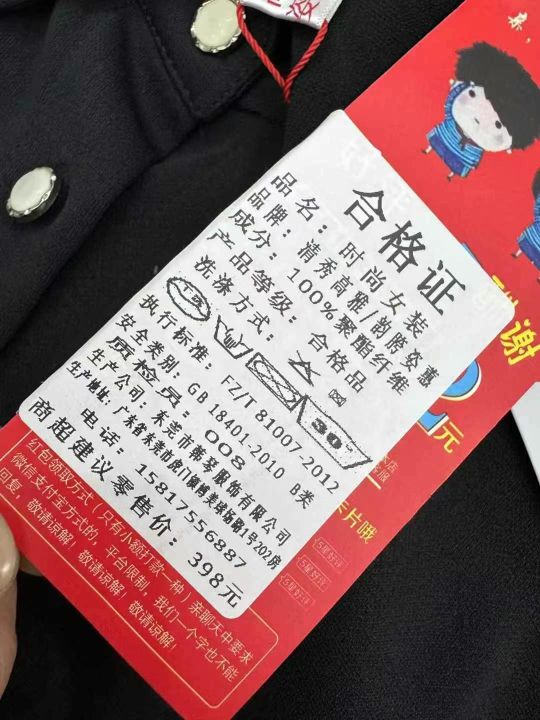 合格证
品名：时尚女装
品牌：清秀高雅/韵腾姿惠
成分：100%聚酯纤维
产品等级：合格品
洗涤方式：
30
执行标准：FZ/T 81007-2012
安全类别：GB 18401-2010 B类
质检员：008
生产公司：东莞市衡琴服饰有限公司
电话：15817556887
商超建议零售价：398元
谢
2元
卡片哦
5星好评
5星好评
5星好评
红包领取方式（只有小额打款一种）亲聊天中要求
微信支付宝方式的，平台限制，我们一个字也不能
回复，敬请谅解！敬请谅解！敬请谅解！